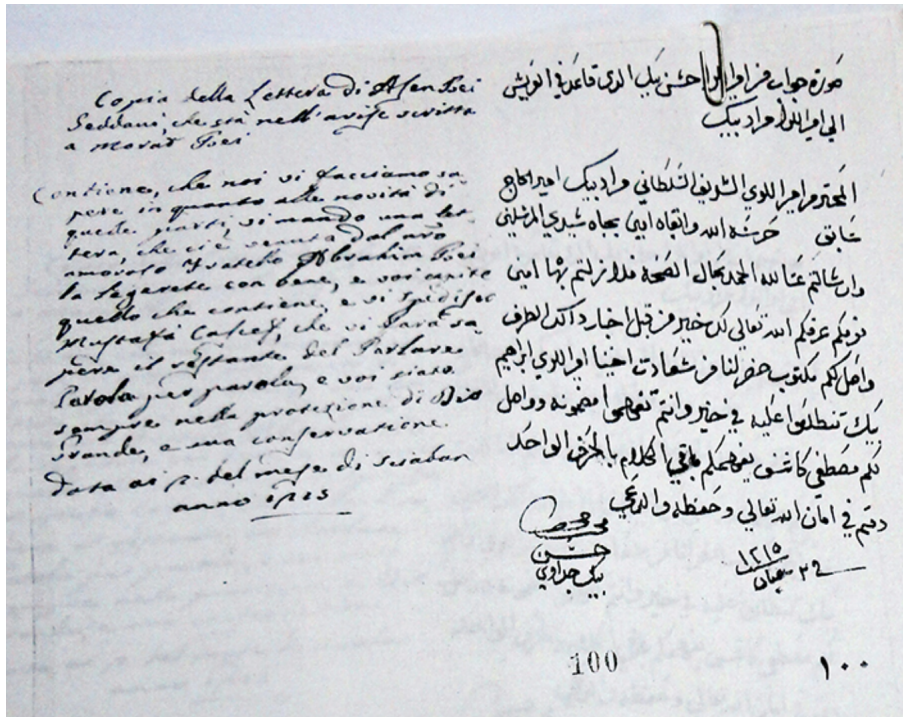 Copia della Lettera di Asen Bei
Seddaui, che stà nell'arife scritta
a Morat Bei
Contiene, che noi vi facciamo sa
pere in quanto alle novità di
queste parti, vi mando una let
tera, che ci è venuta dal nro
amoroso Fratello Abrahim Bei
la legerete con bene, e voi capite
quello che contiene, e vi spedisco
Mustafà Casief, che vi farà sa
pere il restante del Parlare
Parola per parola, e voi siate
sempre nella protezione di Dio
Grande, e sua conservazione
Data ai p. del mese di Sciaban
anno 1215
صورة جواب من حسن بيك الذي قاعد في
الى امير اللوا مراد بيك
امير اللوي الشريف السلطاني مراد بيك امير الحاج
سابق حرسه الله وابقاه امين بجاه سيدي المرسلين
وان سالتم عنا لله الحمد بحال الصحة ملازلتم بها امين
نعرفكم الله تعالى كل خير من قبل اخبار ذلك الطرف
واصل لكم مكتوب حضر لنا من سعادت اخينا امير اللوي ابراهيم
بيك تنطلقوا عليه في خير وانتم تفهموا مضمونه وواصل
لكم مصطفى كاشف يفهمكم باقي الكلام بالحرف الواحد
دمتم في امان الله تعالى وحفظه
حسن
بيك جداوي
شعبان
١٢١٥
100
١٠٠